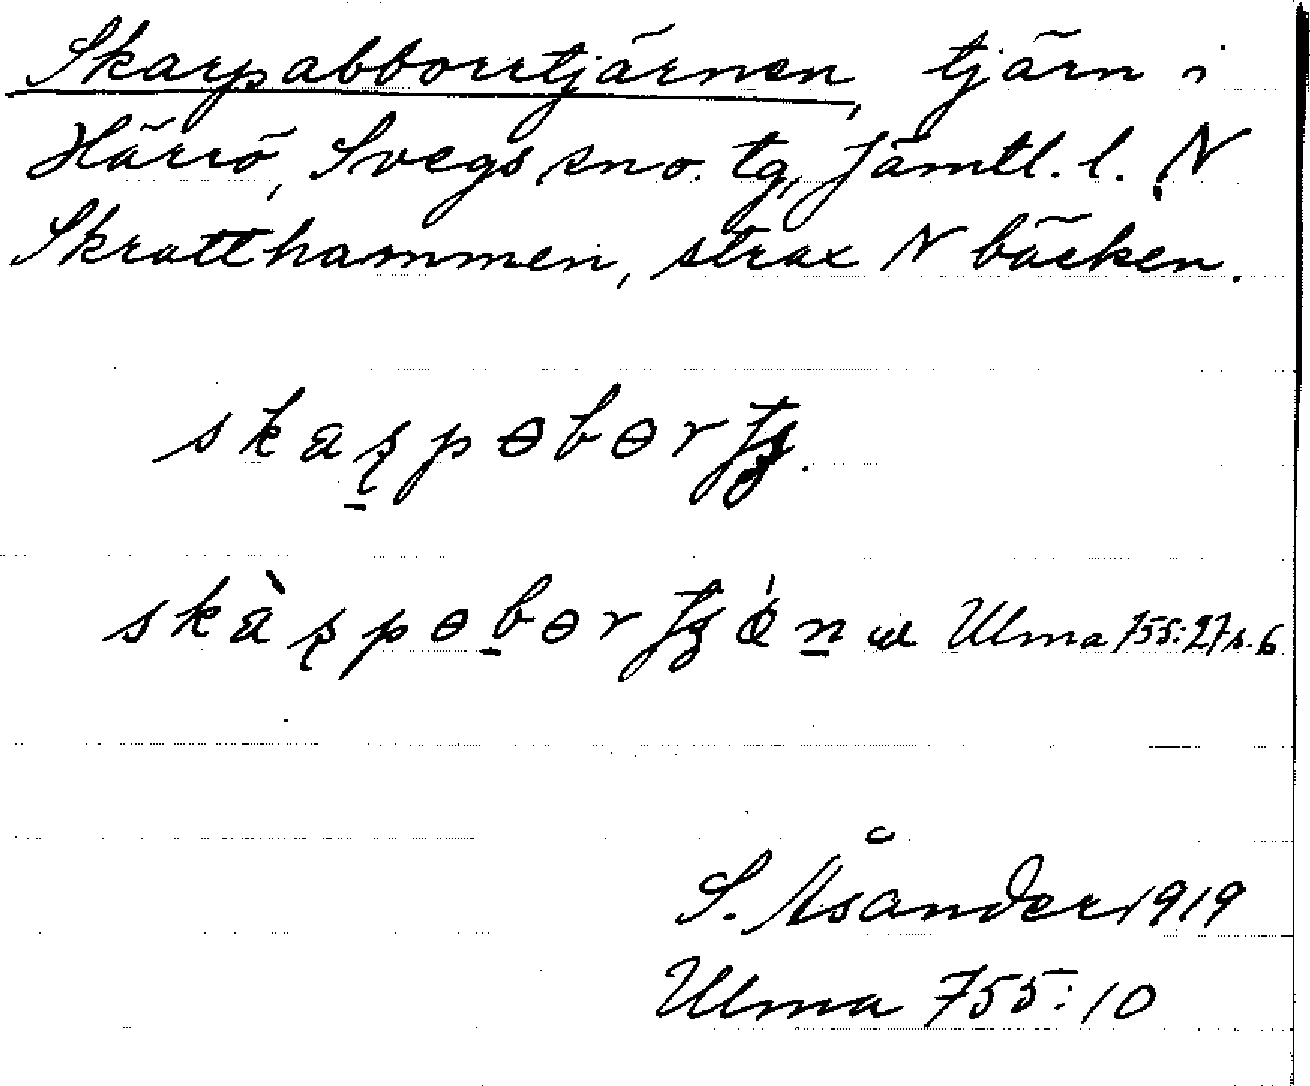 Skarpabborrtjärnen, tjärn i
Härrö, Svegs sno. tg, Jämtl. l. N
Skratthammen, strax N bäcken.
Ulma 755:27 s. 6
S. Åsander 1919
Ulma 755:10